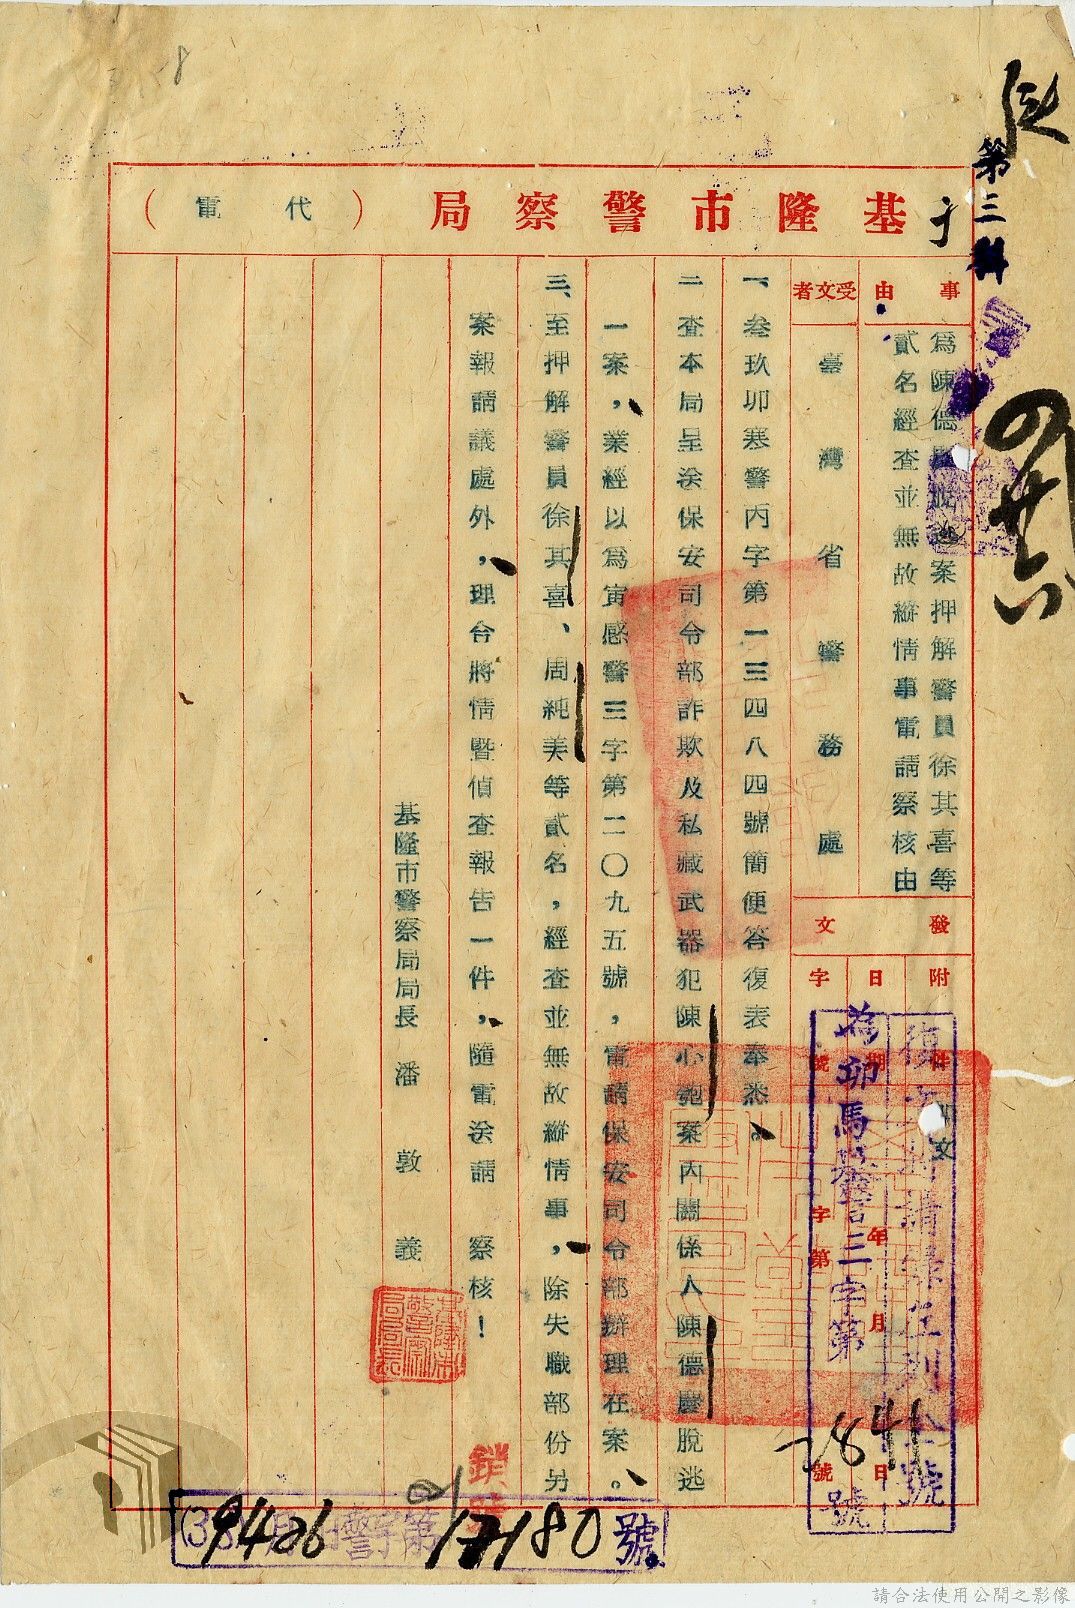 基隆市警察局（代電）
第三科
事由
為陳德慶脫逃案押解警員徐其喜等
貳名經查並無故縱情事電請察核由
受文者
臺灣省警務處
發文
附件
日期
年月日
字號
字第號
如文
復文時請錄左列全號
卯馬警三字第
2841
號
一、叁玖卯寒警丙字第一三四八四號簡便答復表奉悉。
二查本局呈送保安司令部詐欺及私藏武器犯陳心匏案內關係人陳德慶脫逃
一案，業經以為寅感警三字第二〇九五號，電請保安司令部辦理在案。
三、至押解警員徐其喜、周純美等貳名，經查並無故縱情事，除失職部份另
案報請議處外，理合將情暨偵查報告一件，隨電送請　察核！
基隆市警察局局長　潘敦義
基隆市警察局局長
警字第17180號
請合法使用公開之影像